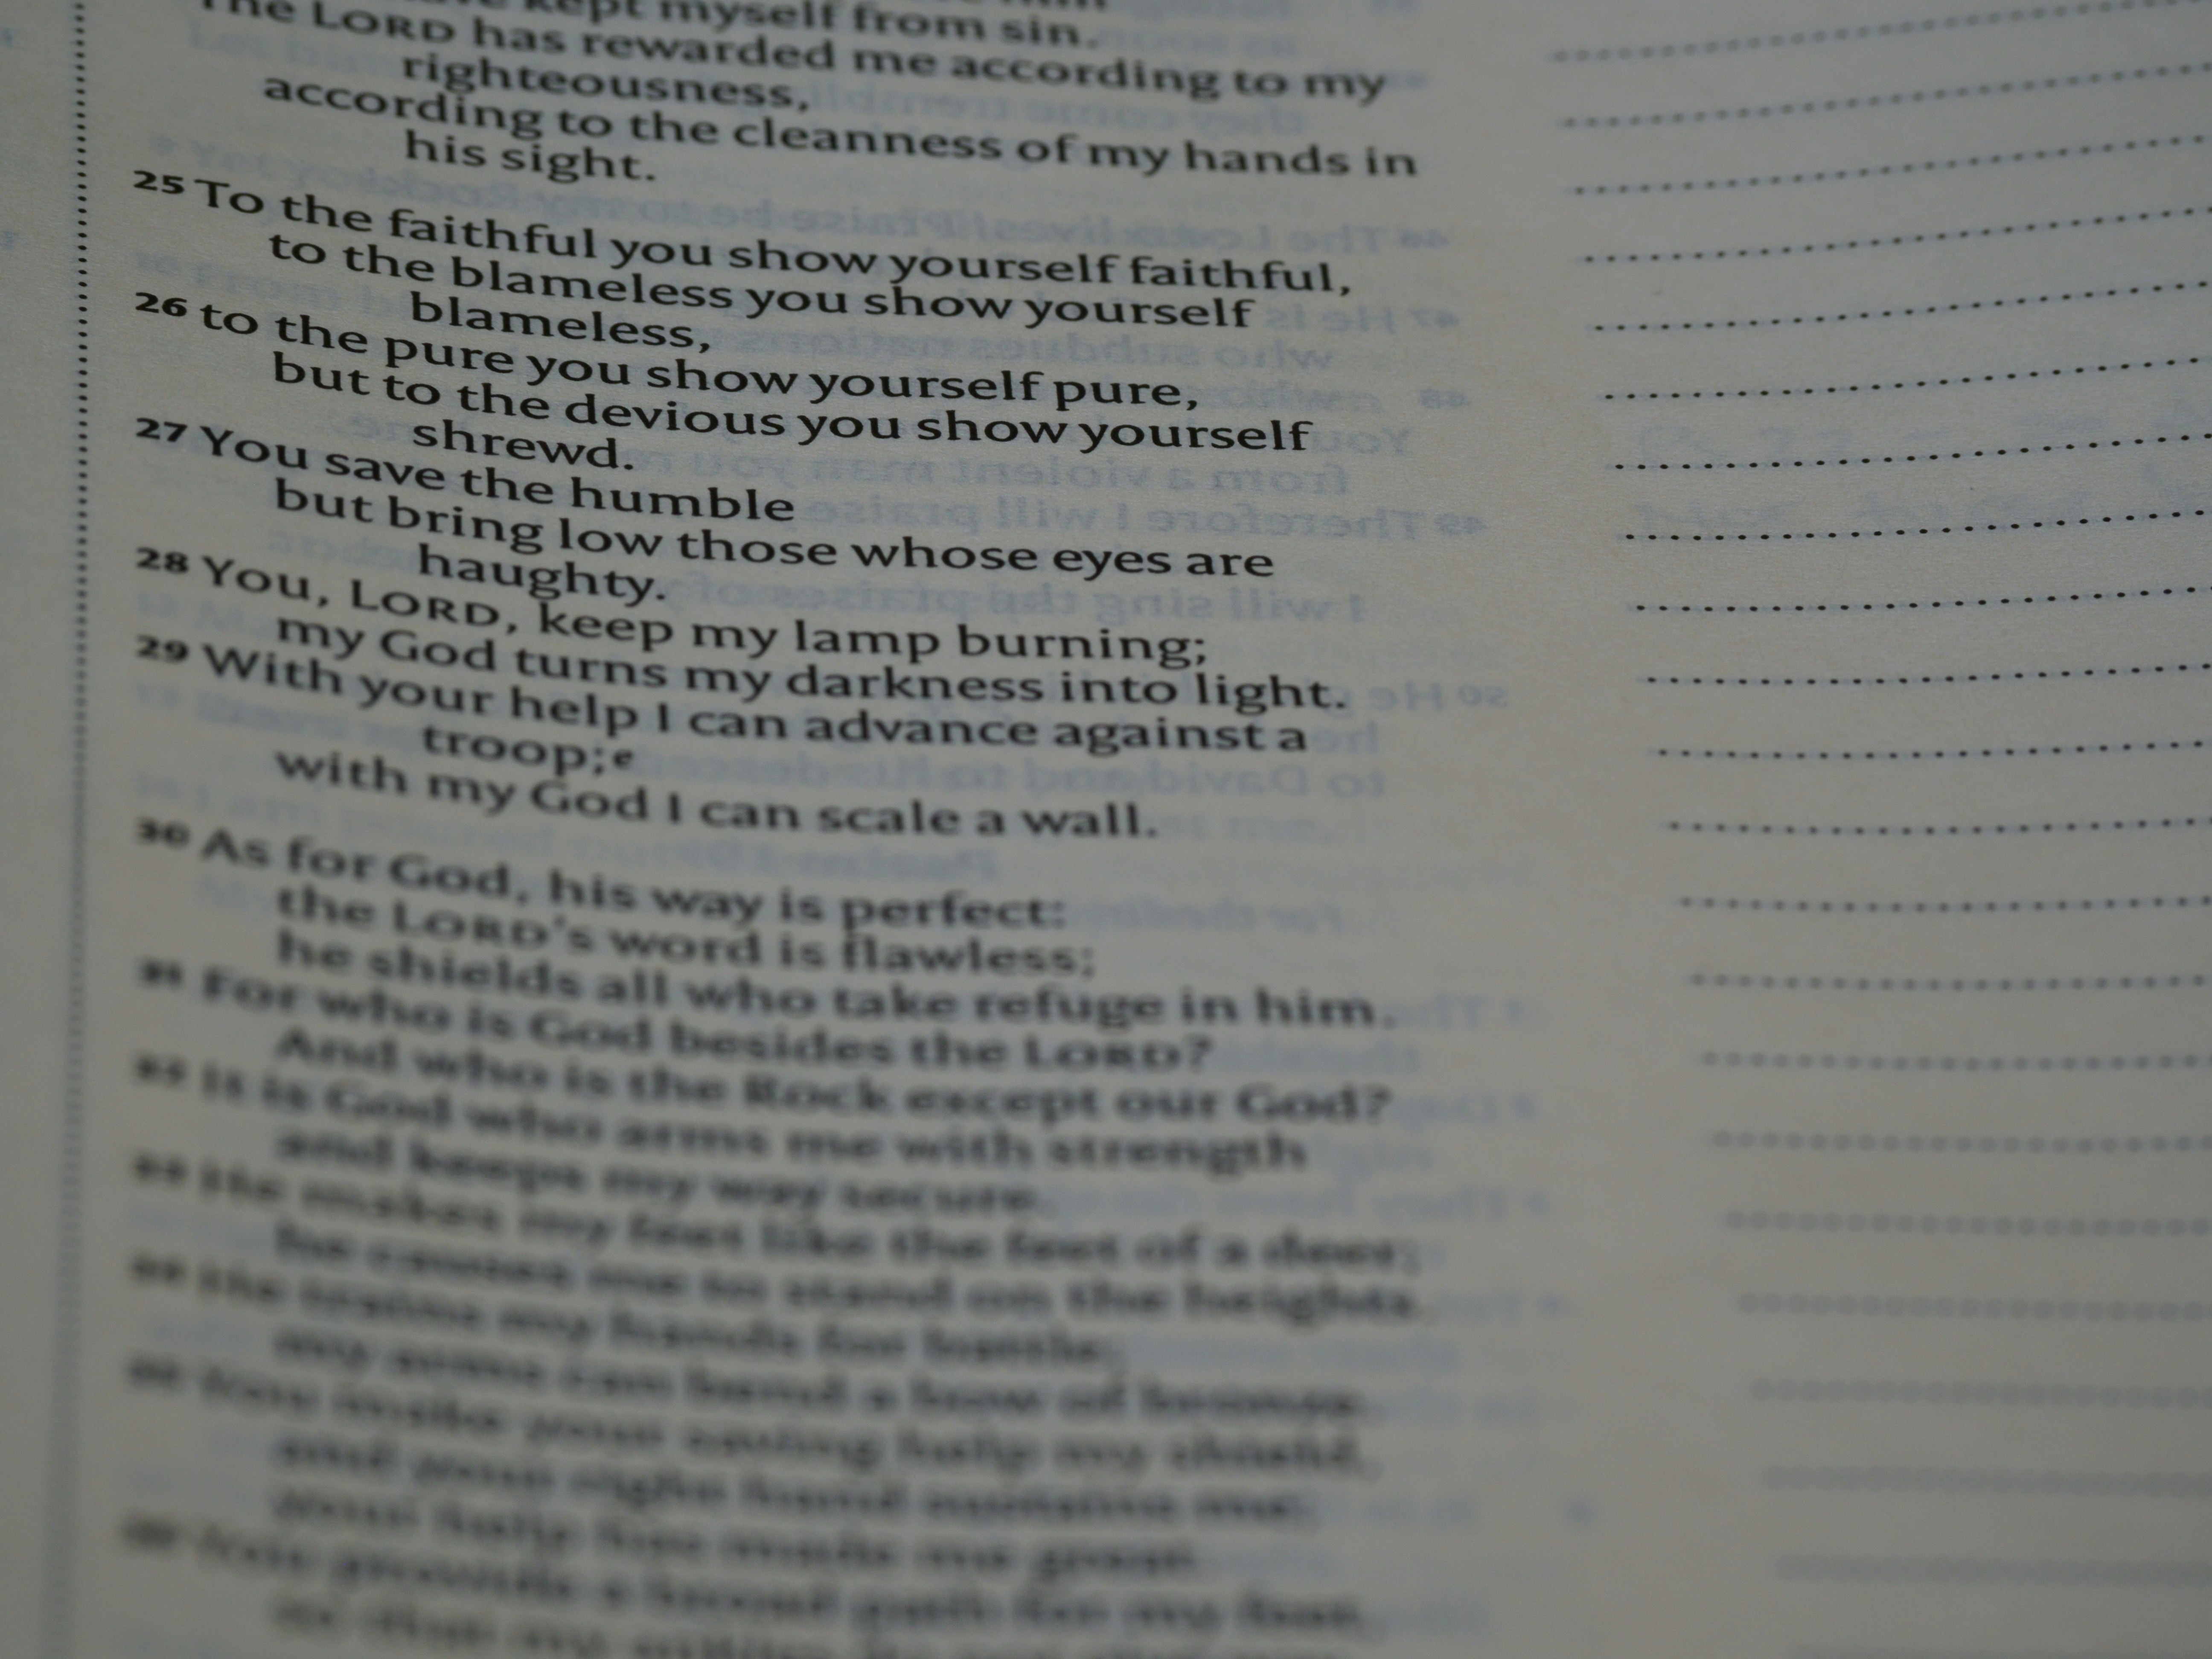 kept myself from sin.
The LORD has rewarded me according to my
righteousness,
according to the cleanness of my hands in
his sight.
25 To the faithful you show yourself faithful,
to the blameless you show yourself
blameless,
26 to the pure you show yourself pure,
but to the devious you show yourself
shrewd.
27 You save the humble
but bring low those whose eyes are
haughty.
28 You, LORD, keep my lamp burning;
my God turns my darkness into light.
29 With your help I can advance against a
troop;e
with my God I can scale a wall.
30 As for God, his way is perfect:
the LORD's word is flawless;
he shields all who take refuge in him.
31 For who is God besides the LORD?
And who is the Rock except our God?
32 It is God who arms me with strength
and keeps my way secure.
33 He makes my feet like the feet of a deer;
he causes me to stand on the heights.
34 He trains my hands for battle;
my arms can bend a bow of bronze.
35 You make your saving help my shield,
and your right hand sustains me;
your help has made me great.
36 You provide a broad path for my feet,